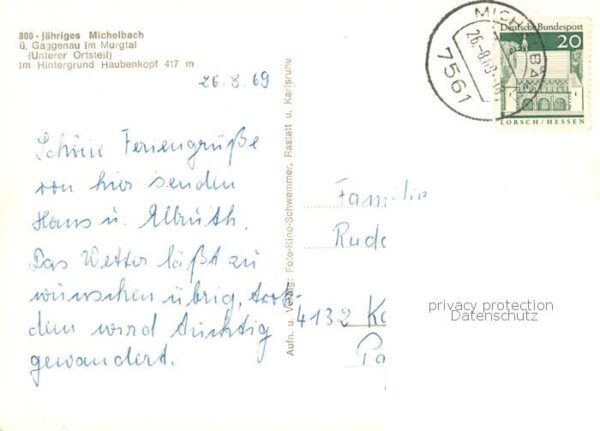 800 - jähriges Michelbach
ü. Gaggenau im Murgtal
(Unterer Ortsteil)
Im Hintergrund Haubenkopf 417 m
26.8.69
Schöne Feriengrüße
von hier senden
Hans u.
Das Wetter läßt zu
wünschen übrig, trotz-
dem wird tüchtig
gewandert.
Aufn. u. Verlag: Foto-Kino-Schwemmer, Rastatt u. Karlsruhe
Deutsche Bundespost
20
LORSCH/HESSEN
7561
Familie
4132
privacy protection
Datenschutz